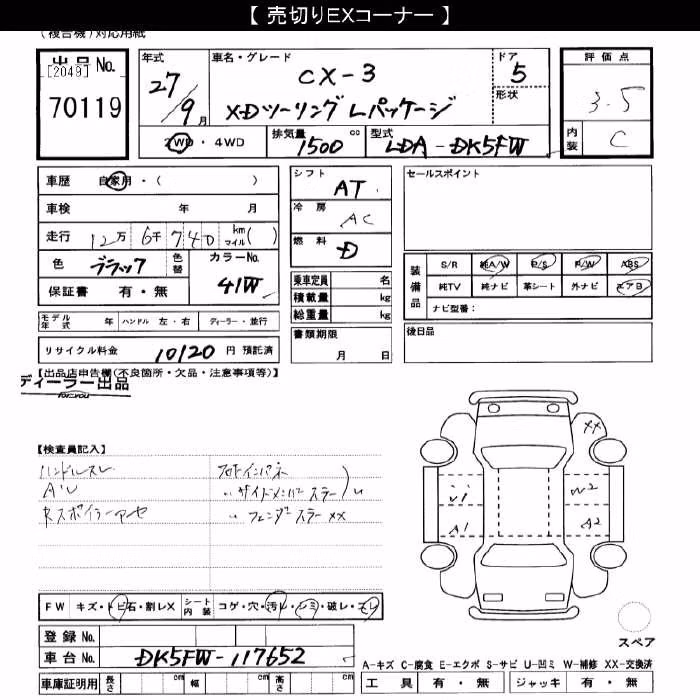 【 売切りEXコーナー 】
(複合機)対応用紙
出品 No.
[2049]
70119
年式
27/9月
車名・グレード
CX-3
XDツーリング Lパッケージ
ドア
5
形状
評価点
3.5
内装
C
2WD・4WD
排気量
1500 cc
型式
LDA-DK5FW
車歴 自家用・( )
車検 年 月
走行 12万 6千 740 km マイル( )
色 ブラック
色替
カラーNo.
41W
保証書 有・無
シフト
AT
冷房
AC
燃料
D
乗車定員 名
積載量 kg
総重量 kg
セールスポイント
装備品
S/R 純A/W P/S P/W ABS
純TV 純ナビ 革シート 外ナビ エアB
ナビ型番:
モデル年式 年 ハンドル 左・右 ディーラー・並行
リサイクル料金 10120 円 預託済
書類期限
月 日
後日品
【出品店申告欄(不良箇所・欠品・注意事項等)】
ディーラー出品
【検査員記入】
ハンドルスレ
AU
Rスポイラーアセ
サイドメンバー ステー
フェンダーステー XX
XX
U1 W2
A1 A2
FW キズ・トビ石・割レX
シート内装 コゲ・穴・汚レ・シミ・破レ・スレ
スペア
登録 No.
車台 No. DK5FW-117652
A-キズ C-腐食 E-エクボ S-サビ U-凹ミ W-補修 XX-交換済
車庫証明用 長さ cm 幅 cm 高さ cm
工具 有・無 ジャッキ 有・無